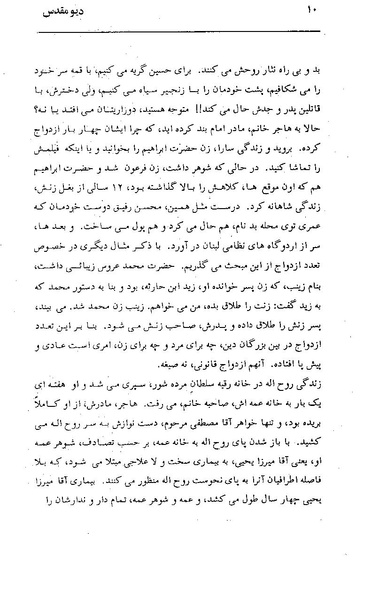 ۱۰
دیو مقدس
بد و بی راه نثار روحش می کنند. برای حسین گریه می کنیم، با قمه سر خود
را می شکافیم، پشت خودمان را با زنجیر سیاه می کنیم، ولی دخترش، با
قاتلین پدر و جدش حال می کند!! متوجه هستید، دوزاریتان می افتد یا نه؟
حالا به هاجر خانم، مادر امام بند کرده اید، که چرا ایشان چهار بار ازدواج
کرده. بروید و زندگی سارا، زن حضرت ابراهیم را بخوانید و یا اینکه فیلمش
را تماشا کنید. در حالی که شوهر داشت، زن فرعون شد و حضرت ابراهیم
هم که اون موقع ها، کلاهش را بالا گذاشته بود، ۱۲ سالی از بغل زنش،
زندگی شاهانه کرد. درست مثل همین، محسن رفیق دوست خودمان که
عمری توی محله بد نام، هم حال می کرد و هم پول می ساخت. و بعد ها،
سر از اردوگاه های نظامی لبنان در آورد. با ذکر مثال دیگری در خصوص
تعدد ازدواج از این مبحث می گذریم. حضرت محمد عروس زیبائی داشت،
بنام زینب، که زن پسر خوانده او، زید ابن حارثه، بود و بنا به دستور محمد که
به زید گفت: زنت را طلاق بده، من می خواهم. زینب زن محمد شد. می بیند،
پسر زنش را طلاق داده و پدرش، صاحب زنش می شود. بنا بر این تعدد
ازدواج در بین بزرگان دین، چه برای مرد و چه برای زن، امری است عادی و
پیش پا افتاده. آنهم ازدواج قانونی، نه صیغه.
زندگی روح اله در خانه رقیه سلطان مرده شور، سپری می شد و او هفته ای
یک بار به خانه عمه اش، صاحبه خانم، می رفت. هاجر، مادرش، از او کاملاً
بریده بود، و تنها خواهر آقا مصطفی مرحوم، دست نوازش به سر روح اله می
کشید. با باز شدن پای روح اله به خانه عمه، بر حسب تصادف، شوهر عمه
او، یعنی آقا میرزا یحیی، به بیماری سخت و لا علاجی مبتلا می شود، که بلا
فاصله اطرافیان آنرا به پای نحوست روح اله منظور می کنند. بیماری آقا میرزا
یحیی چهار سال طول می کشد، و عمه و شوهر عمه، تمام دار و ندارشان را